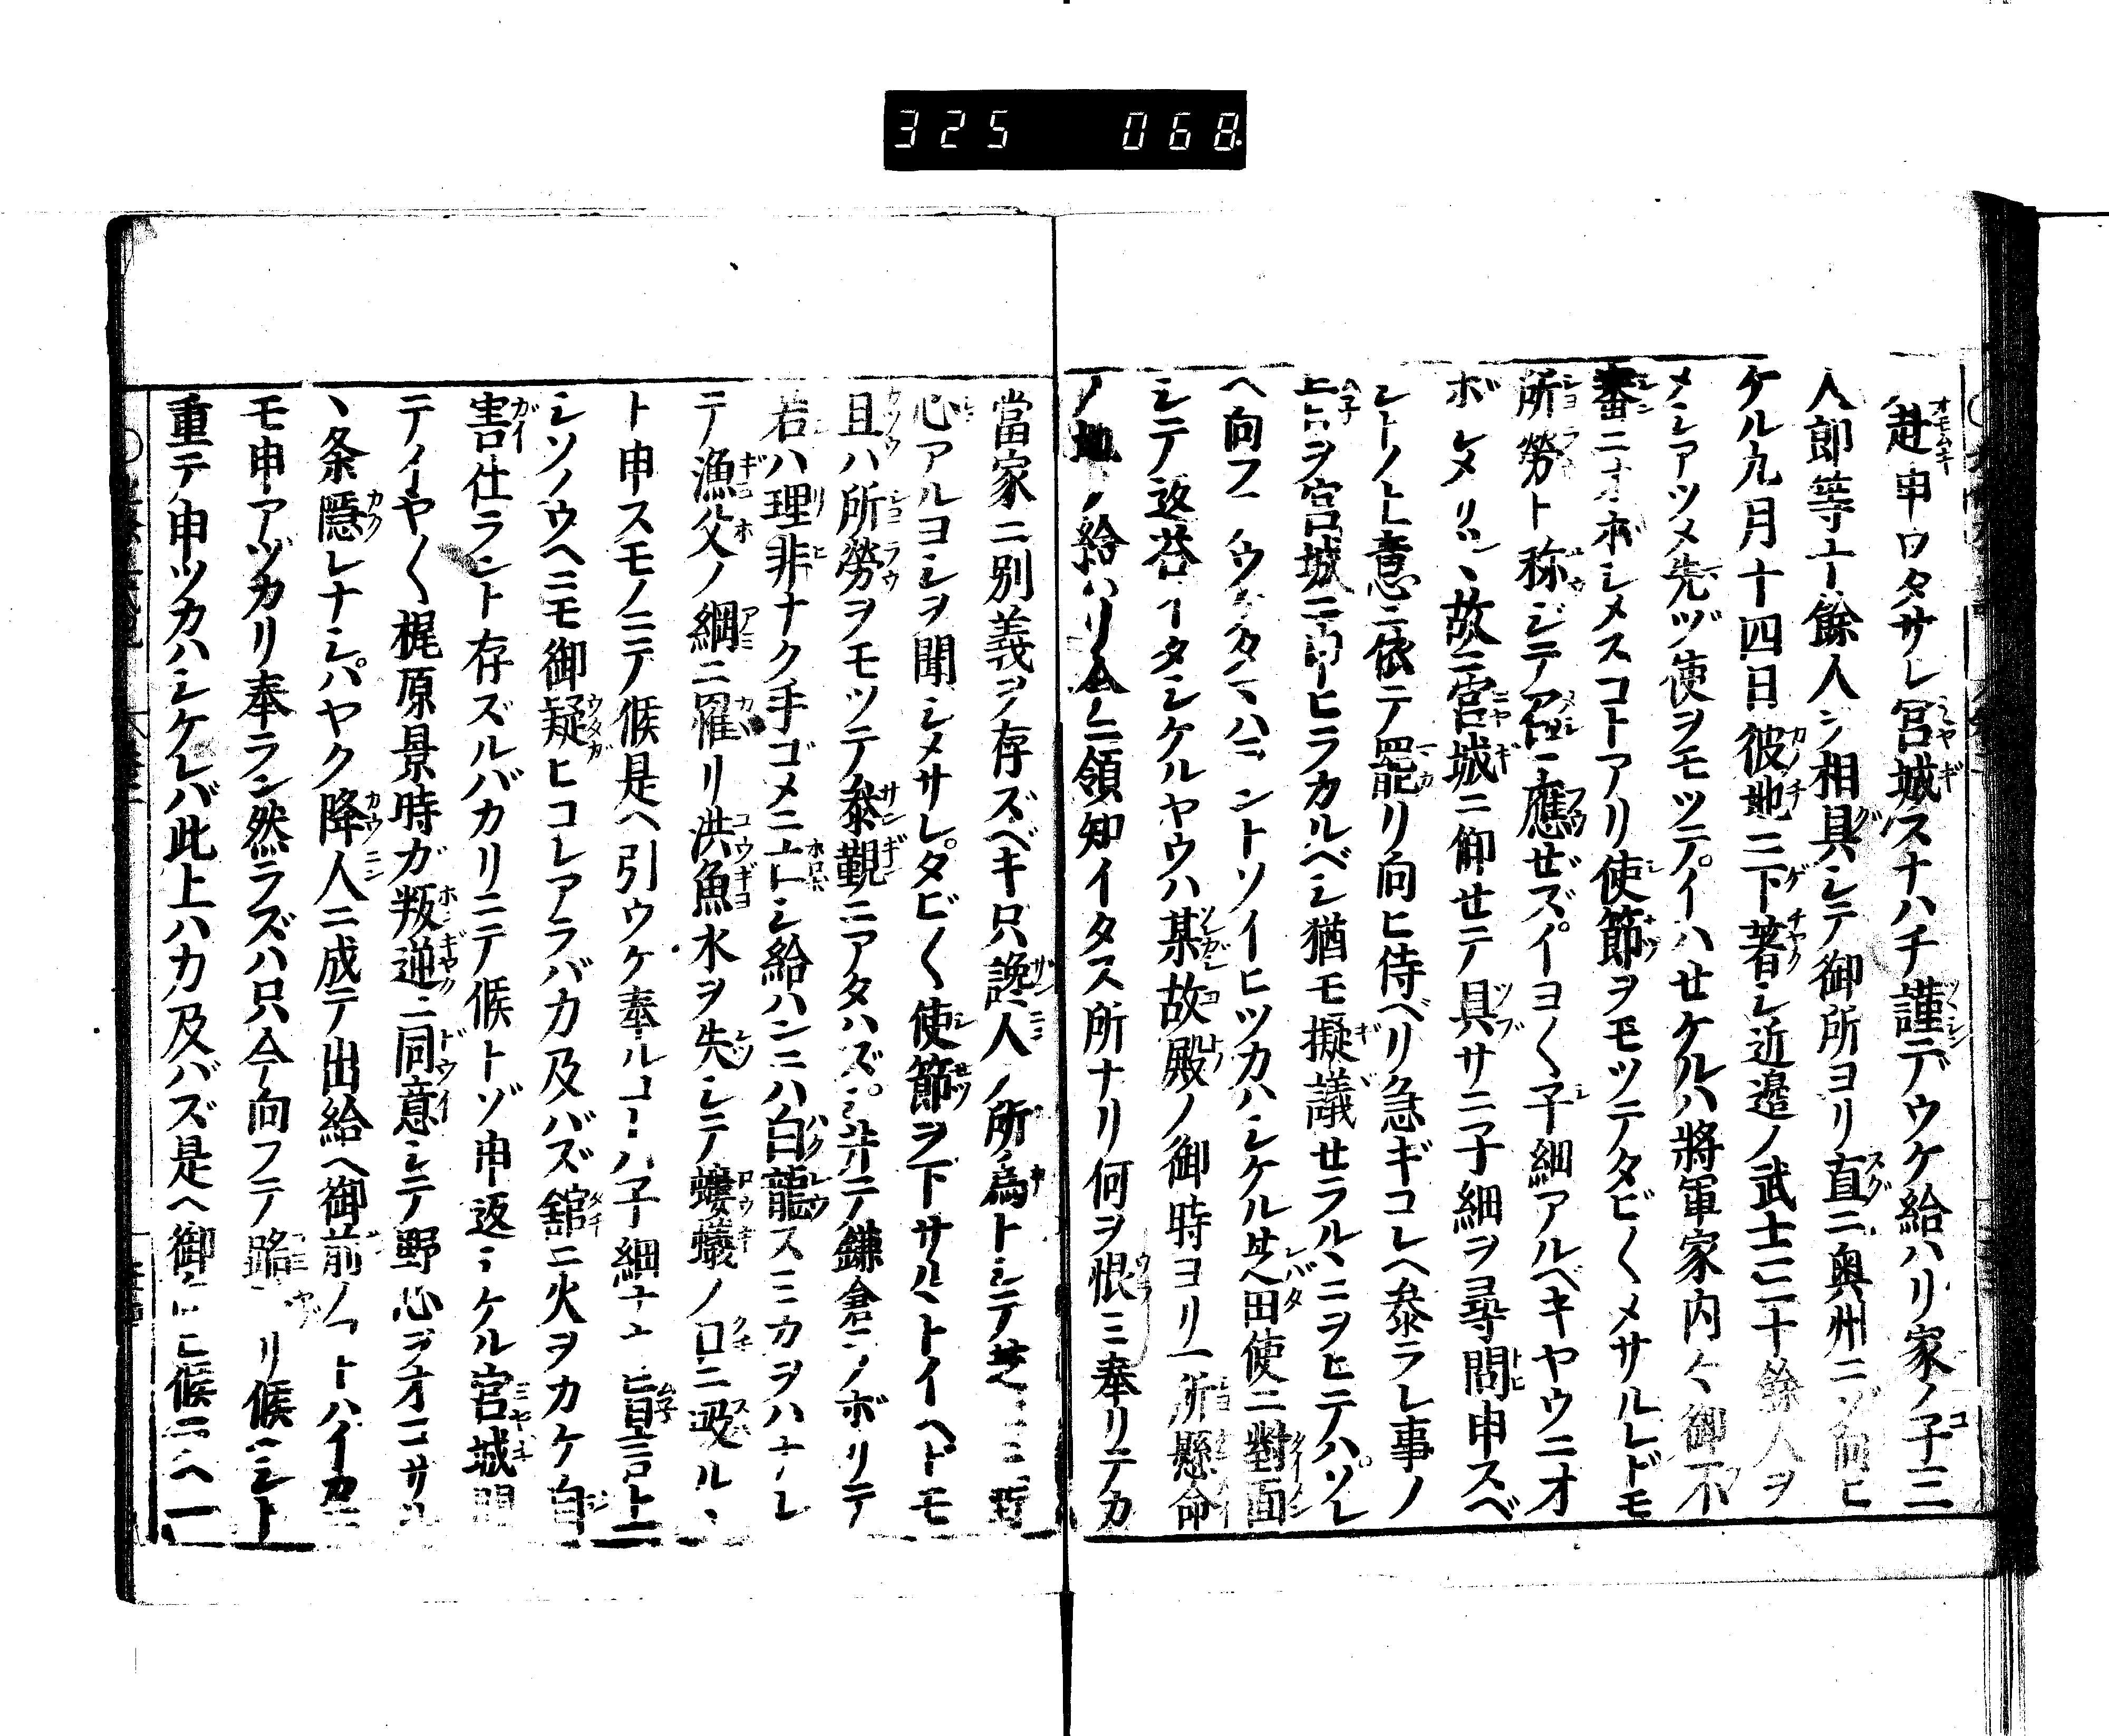 325 068
赴申ワタサレ宮城スナハチ謹デウケ給ハリ家ノ子三
人郎等十餘人ヲ相具シテ御所ヨリ直ニ奥州ニゾ向ヒ
ケル九月十四日彼地ニ下著シ近邊ノ武士三十餘人ヲ
メシアツメ先ヅ使ヲモツテイハせケルハ將軍家内々御不
審ニオボシメスコトアリ使節ヲモツテタビ〱メサルレドモ
所勞ト称ジテ召ニ應ぜズイヨ〱子細アルベキヤウニオ
ボシメサレ故ニ宮城ニ仰せテ具サニ子細ヲ尋問申スベ
シトノ上意ニ依テ罷リ向ヒ侍ベリ急ギコレヘ参ラレ事ノ
旨ヲ宮城ニ申ヒラカルベシ猶モ擬議せラルヽニヲヒテハソレ
ヘ向フ ントソイヒツカハシケル芝田使ニ對面
シテ返荅イタシケルヤウハ某故殿ノ御時ヨリ一所懸命
ノ地ヲ給ハリ今ニ領知イタス所ナリ何ヲ恨ミ奉リテカ
當家ニ別義ヲ存ズベキ只讒人ノ所爲トシテ芝
心アルヨシヲ聞シメサレタビ〱使節ヲ下サルヽトイヘドモ
且ハ所勞ヲモツテ参覲ニアタハズ 鎌倉ニノボリテ
若ハ理非ナク手ゴメニ亡シ給ハンニハ白龍スミカヲハナレ
テ漁父ノ綱ニ罹リ洪魚水ヲ失シテ螻蟻ノ口ニ吸ルヽ
ト申スモノニテ候是ヘ引ウケ奉ルコトハ子細ナキ旨言上
シソノウヘニモ御疑ヒコレアラバカ及バズ舘ニ火ヲカケ自
害仕ラント存ズルバカリニテ候トゾ申返シケル宮城聞
テイヤ〱梶原景時ガ叛逆ニ同意シテ野心ヲオコサル
ヽ条隱レナシハヤク降人ニ成テ出給ヘ御前ノコトハイカニ
モ申アヅカリ奉ラン然ラズハ只今向フテ リ候ベシト
重テ申ツカハシケレバ此上ハカ及バズ是ヘ御 候ヘ一